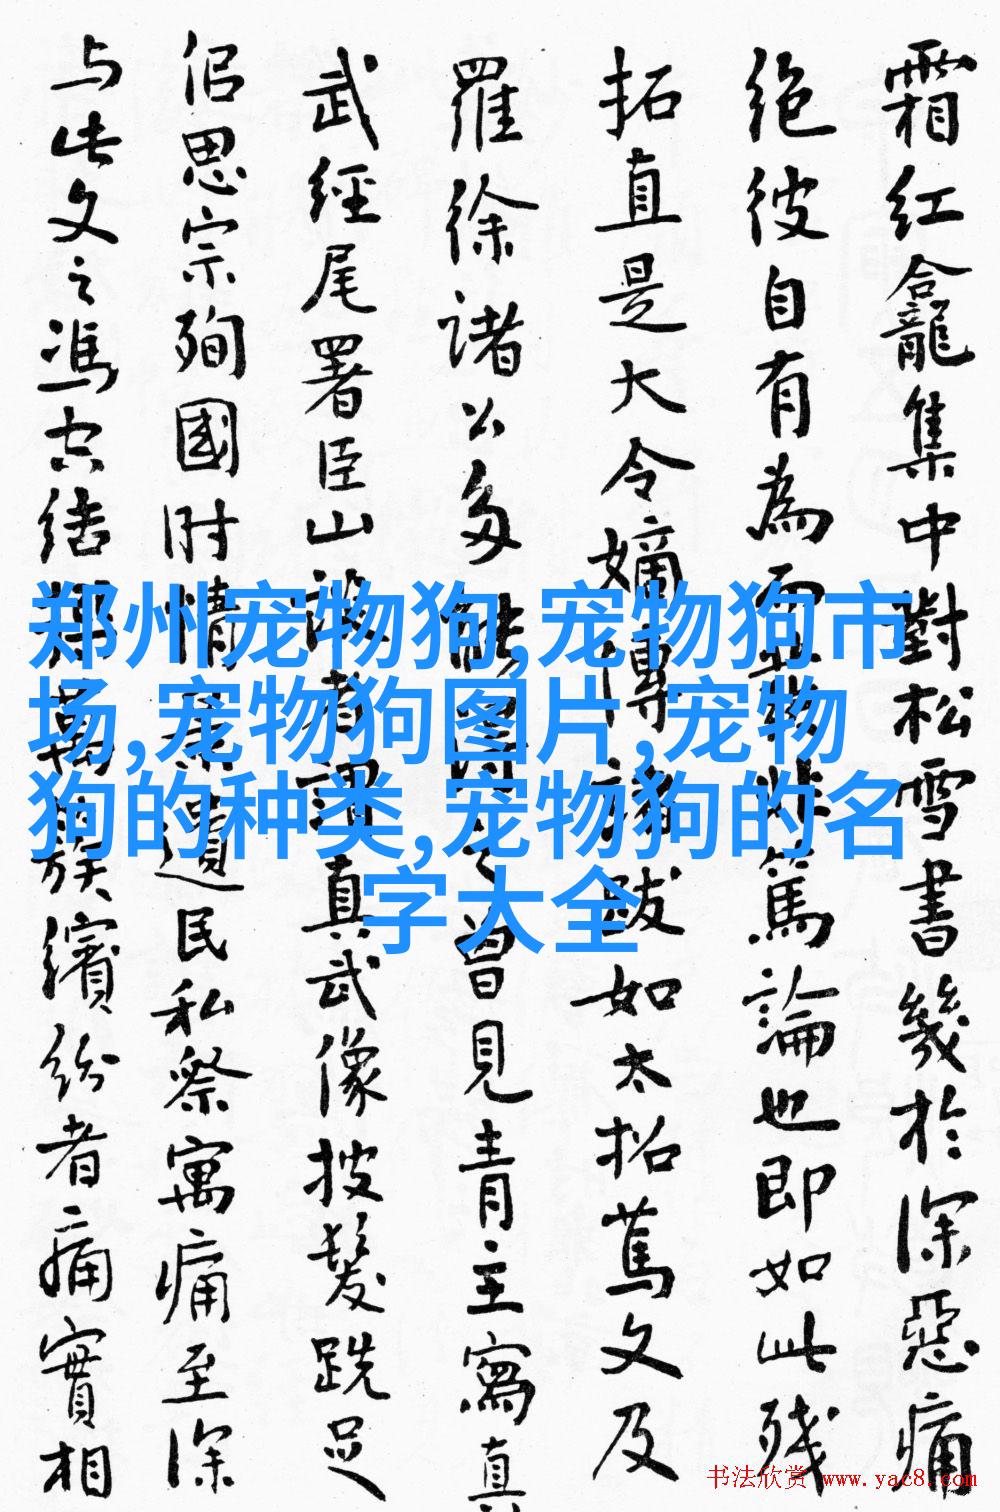 郑州宠物狗,宠物狗市
场,宠物狗图片,宠物
狗的种类,宠物狗的名
字大全
霜紅龕集中對松雪書幾於深惡痛
絶彼自有為非篤論也即如此殘
拓直是大令嫡傳諸跋如太拓文及
羅徐諸公多曾見青主寫真
武經尾署臣山謂真武像披髮跣足
侶思宗殉國时情遺民私祭寓痛至深
与此文之馮族繽紛者痛實相
书法欣赏 www.yac8.com